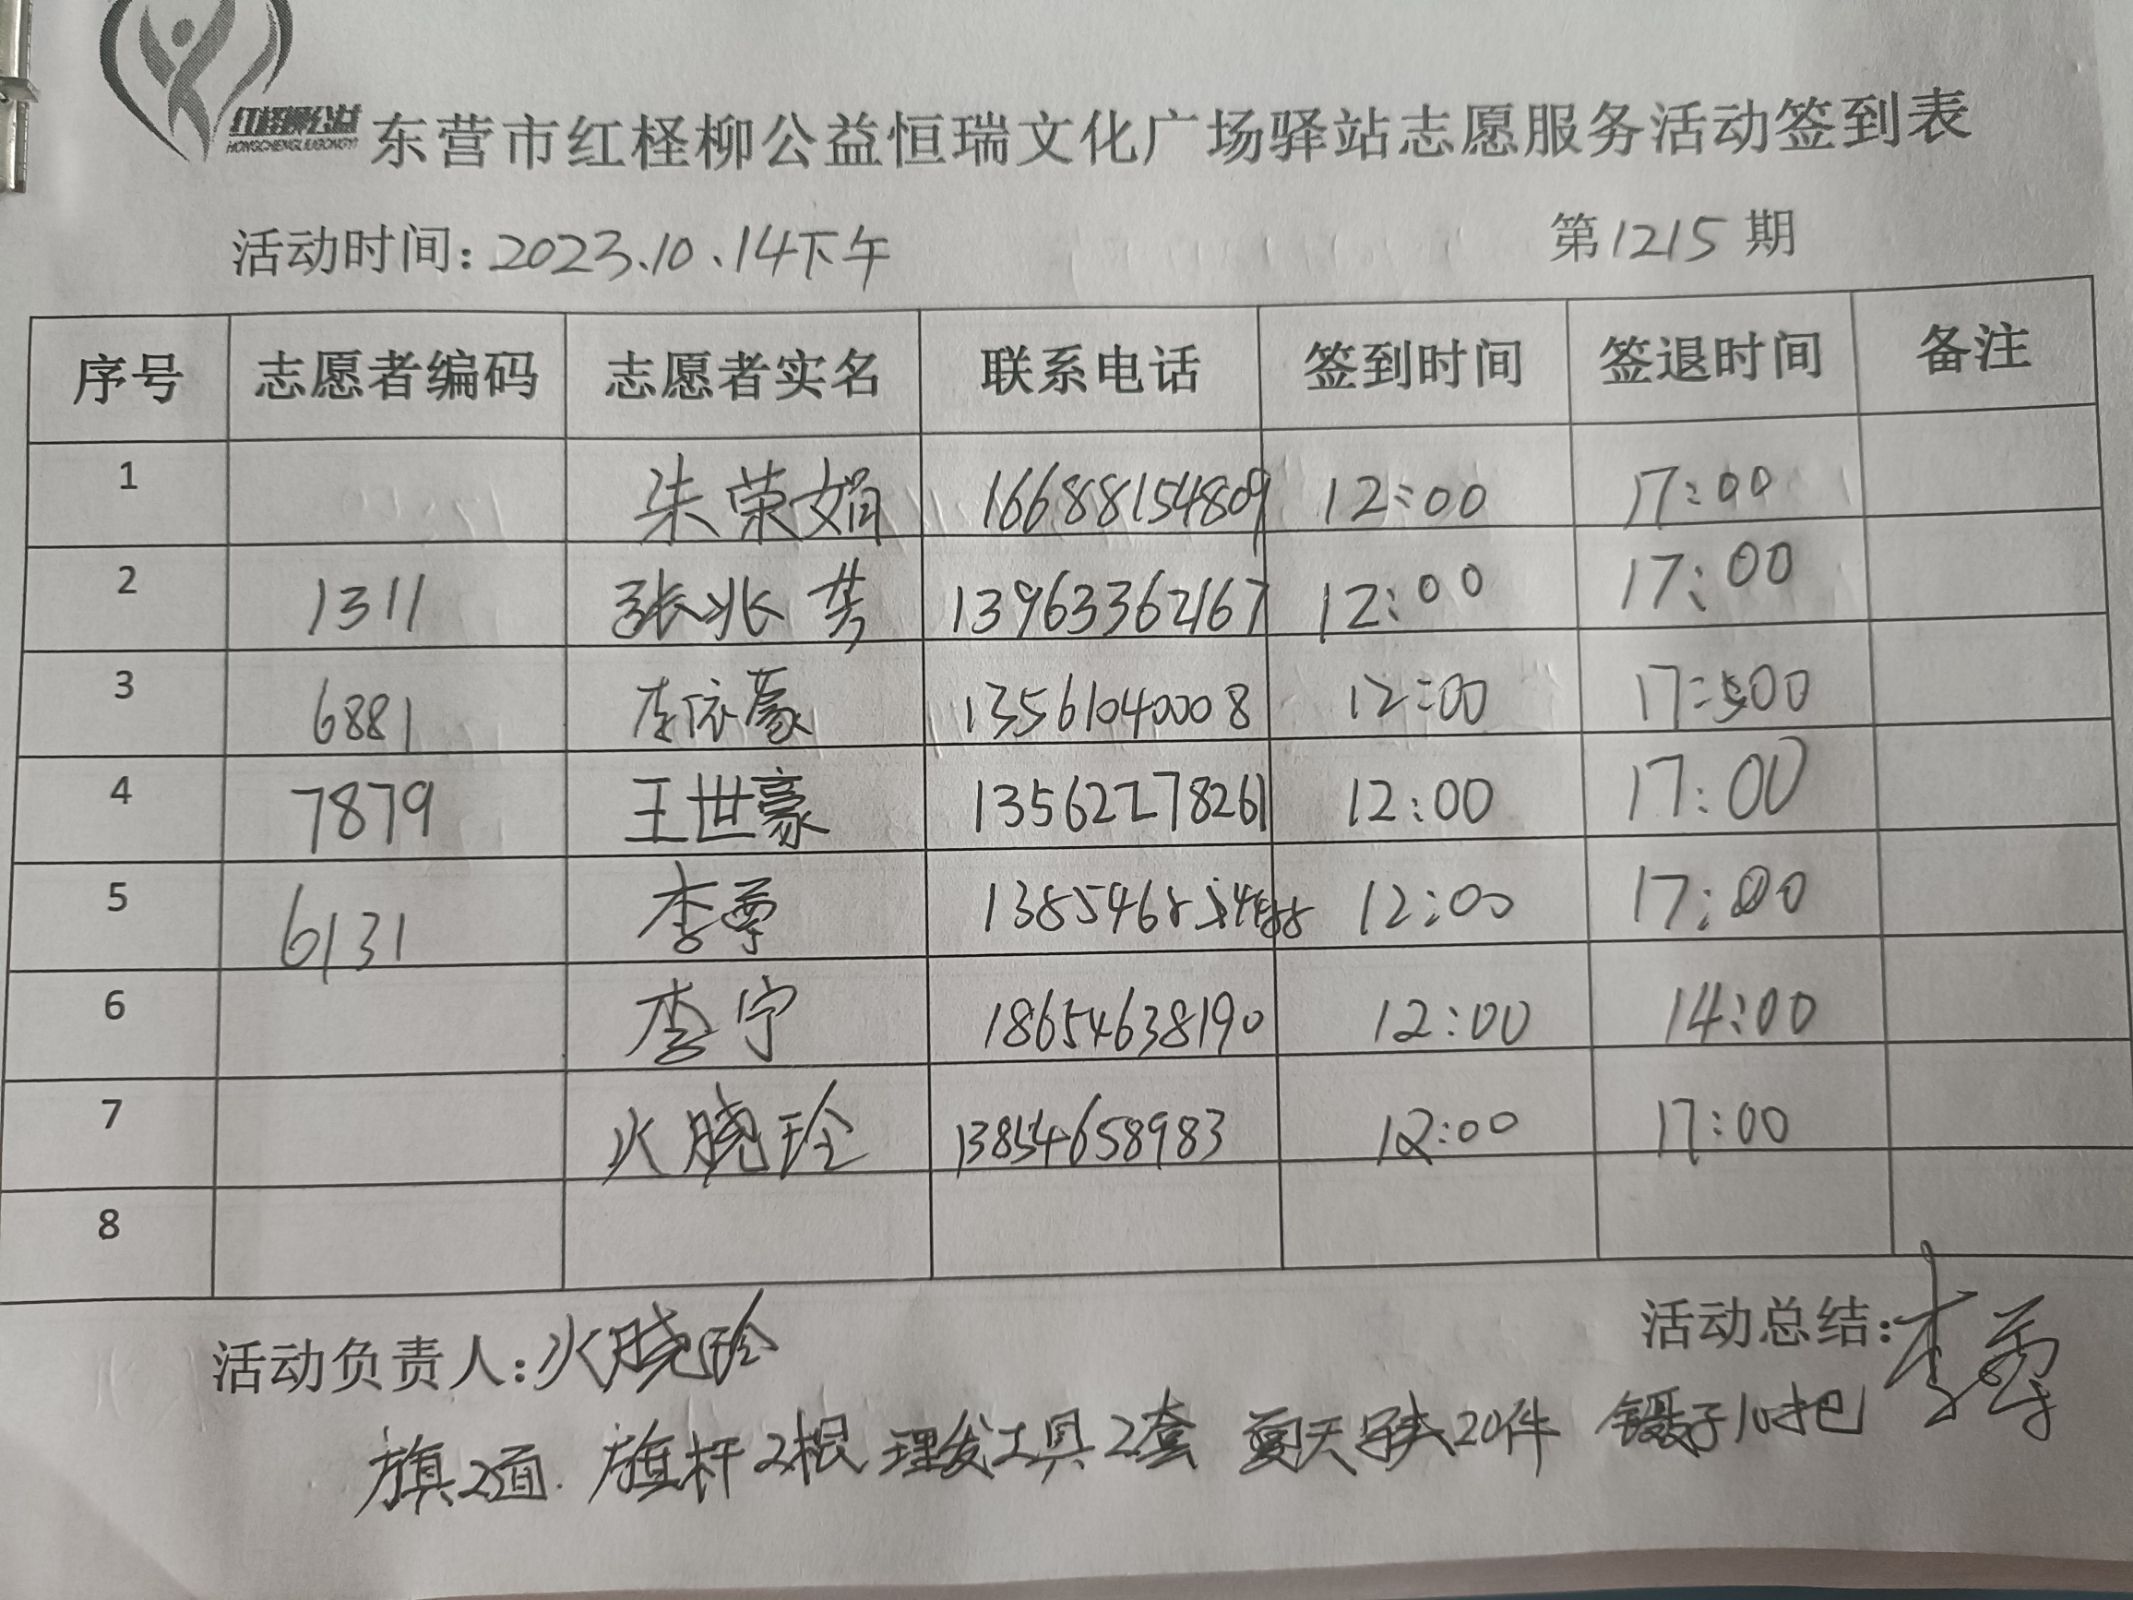 红柽柳公益
HONGCHENGLIUGONGYI
东营市红柽柳公益恒瑞文化广场驿站志愿服务活动签到表
活动时间: 2023.10.14下午 第1215期
序号 志愿者编码 志愿者实名 联系电话 签到时间 签退时间 备注
1 朱荣娟 16688154809 12:00 17:00
2 1311 张兆英 13963362167 12:00 17:00
3 6881 李依蒙 13561040008 12:00 17:00
4 7879 王世豪 13562278261 12:00 17:00
5 6131 李尊 12:00 17:00
6 李宁 18654638190 12:00 14:00
7 火晓玲 13854658983 12:00 17:00
8
活动负责人:火晓玲 活动总结:李尊
旗2面. 旗杆2根 理发工具2套 夏天 20件 镊子10把